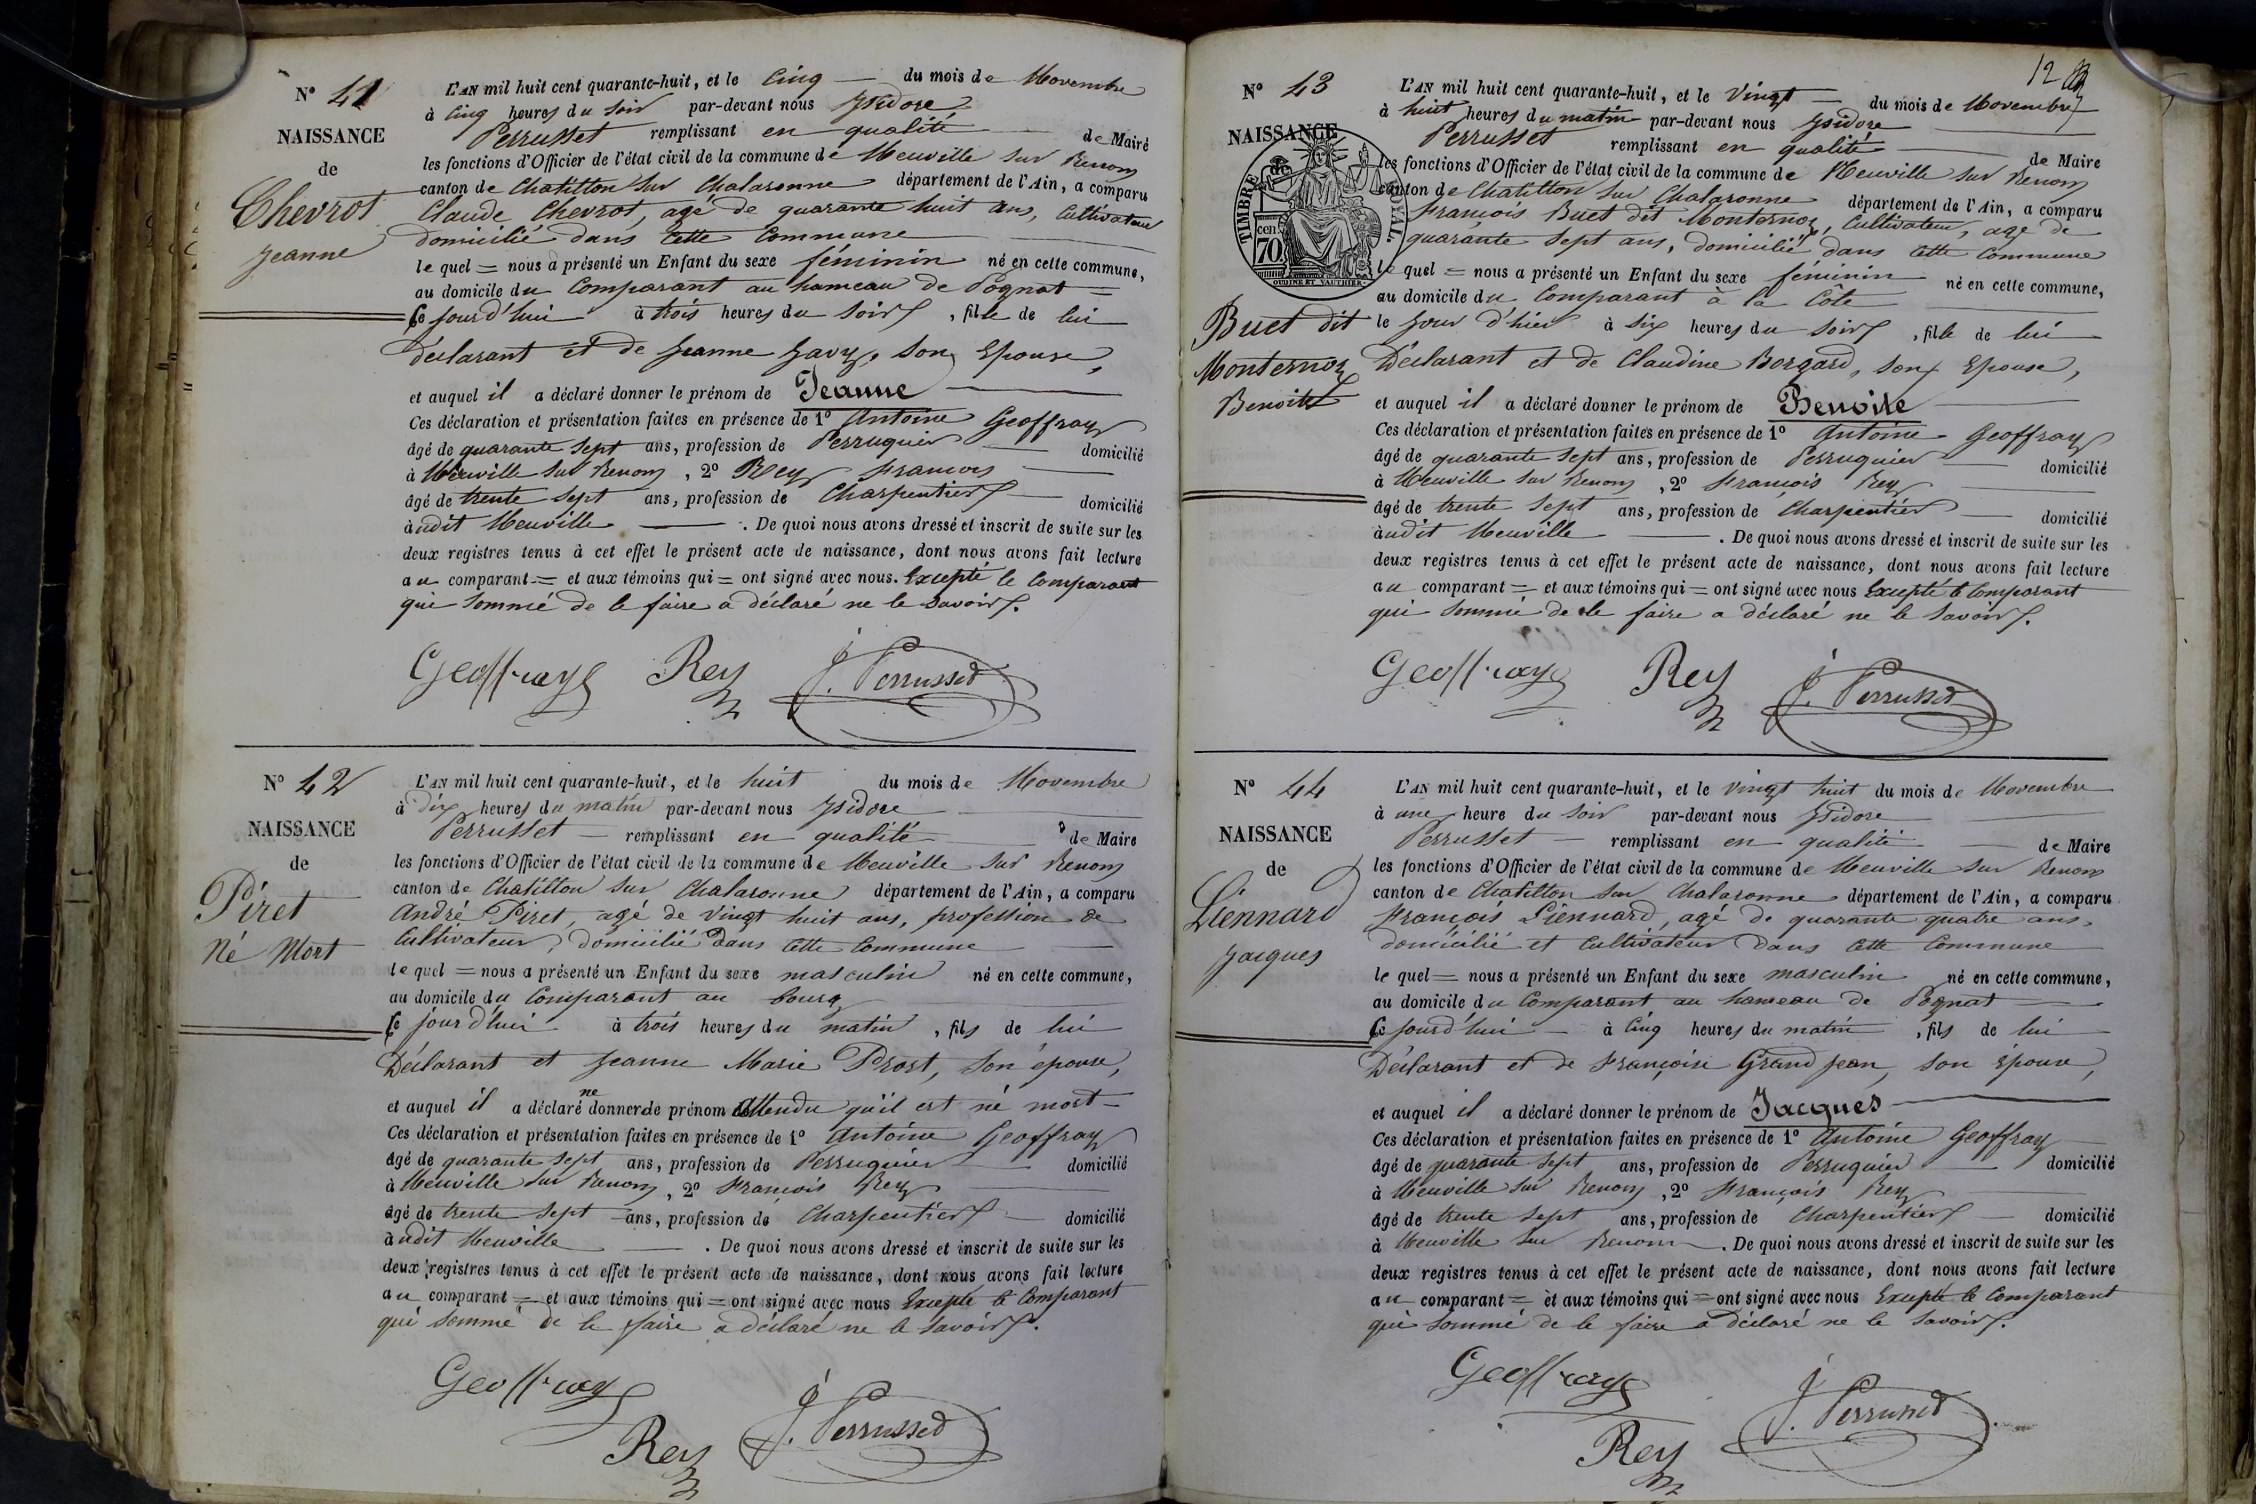 N° 41
NAISSANCE
de
Chevrot
Jeanne
L'AN mil huit cent quarante-huit, et le Cinq du mois de Novembre
à Cinq heures du Soir par-devant nous Isidore
Perrusset remplissant en qualité de Maire
les fonctions d'Officier de l'état civil de la commune de Neuville sur Renom
canton de Chatillon sur Chalaronne département de l'Ain, a comparu
Claude Chevrot, agé de quarante huit ans, Cultivateur
domicilié dans cette Commune
le quel = nous a présenté un Enfant du sexe féminin né en cette commune,
au domicile du Comparant au hameau de Pognat =
Ce jourd'hui à trois heures du Soir, fille de lui
déclarant et de Jeanne Gavy, son Epouse,
et auquel il a déclaré donner le prénom de Jeanne
Ces déclaration et présentation faites en présence de 1° Antoine Geoffray
âgé de quarante sept ans, profession de Perruquier domicilié
à Neuville sur Renom, 2° Rey François
âgé de trente sept ans, profession de Charpentier domicilié
àudit Neuville. De quoi nous avons dressé et inscrit de suite sur les
deux registres tenus à cet effet le présent acte de naissance, dont nous avons fait lecture
au comparant = et aux témoins qui = ont signé avec nous. Excepté le Comparant
qui sommé de le faire a déclaré ne le Savoir.
Geoffray Rey J. Perrusset
N° 42
NAISSANCE
de
Piret
Né Mort
L'AN mil huit cent quarante-huit, et le huit du mois de Novembre
à Dix heures du matin par-devant nous Isidore
Perrusset remplissant en qualité de Maire
les fonctions d'Officier de l'état civil de la commune de Neuville sur Renom
canton de Chatillon sur Chalaronne département de l'Ain, a comparu
André Piret, agé de vingt huit ans, profession de
Cultivateur, domicilié dans cette Commune
le quel = nous a présenté un Enfant du sexe masculin né en cette commune,
au domicile du Comparant au bourg
Ce jourd'hui à trois heures du matin, fils de lui
Déclarant et Jeanne Marie Prost, son épouse,
et auquel il a déclaré ne donner de prénom attendu qu'il est né mort
Ces déclaration et présentation faites en présence de 1° Antoine Geoffray
âgé de quarante sept ans, profession de Perruquier domicilié
à Neuville sur Renom, 2° François Rey
âgé de trente sept ans, profession de Charpentier domicilié
àudit Neuville. De quoi nous avons dressé et inscrit de suite sur les
deux registres tenus à cet effet le présent acte de naissance, dont nous avons fait lecture
au comparant = et aux témoins qui = ont signé avec nous Excepté le Comparant
qui sommé de le faire a déclaré ne le savoir.
Geoffray
Rey J. Perrusset
12
N° 43
NAISSANCE
de
TIMBRE ROYAL.
70 cen
OUDINÉ ET VAUTHIER
Buet dit
Monternoz
Benoite
L'AN mil huit cent quarante-huit, et le Vingt du mois de Novembre
à huit heures du matin par-devant nous Isidore
Perrusset remplissant en qualité de Maire
les fonctions d'Officier de l'état civil de la commune de Neuville sur Renom
canton de Chatillon sur Chalaronne département de l'Ain, a comparu
François Buet dit Monternoz, Cultivateur, agé de
quarante sept ans, domicilié dans cette Commune
le quel = nous a présenté un Enfant du sexe féminin né en cette commune,
au domicile du Comparant à la Côte
le jour d'hier à Six heures du Soir, fille de lui
Déclarant et de Claudine Borgard, son Epouse,
et auquel il a déclaré donner le prénom de Benoite
Ces déclaration et présentation faites en présence de 1° Antoine Geoffray
âgé de quarante sept ans, profession de Perruquier domicilié
à Neuville sur Renom, 2° François Rey
âgé de trente sept ans, profession de Charpentier domicilié
àudit Neuville. De quoi nous avons dressé et inscrit de suite sur les
deux registres tenus à cet effet le présent acte de naissance, dont nous avons fait lecture
au comparant = et aux témoins qui = ont signé avec nous Excepté le Comparant
qui sommé de le faire a déclaré ne le savoir.
Geoffray Rey J. Perrusset
N° 44
NAISSANCE
de
Liennard
Jacques
L'AN mil huit cent quarante-huit, et le vingt huit du mois de Novembre
à une heure du Soir par-devant nous Isidore
Perrusset remplissant en qualité de Maire
les fonctions d'Officier de l'état civil de la commune de Neuville sur Renom
canton de Chatillon sur Chalaronne département de l'Ain, a comparu
François Liennard, agé de quarante quatre ans,
domicilié et Cultivateur dans cette Commune
le quel = nous a présenté un Enfant du sexe masculin né en cette commune,
au domicile du Comparant au hameau de Pognat
Ce jourd'hui à Cinq heures du matin, fils de lui
Déclarant et de Françoise Grandjean, son Epouse,
et auquel il a déclaré donner le prénom de Jacques
Ces déclaration et présentation faites en présence de 1° Antoine Geoffray
âgé de quarante sept ans, profession de Perruquier domicilié
à Neuville sur Renom, 2° François Rey
âgé de trente sept ans, profession de Charpentier domicilié
à Neuville sur Renom. De quoi nous avons dressé et inscrit de suite sur les
deux registres tenus à cet effet le présent acte de naissance, dont nous avons fait lecture
au comparant = et aux témoins qui = ont signé avec nous Excepté le Comparant
qui sommé de le faire a déclaré ne le Savoir.
Geoffray
Rey J. Perrusset